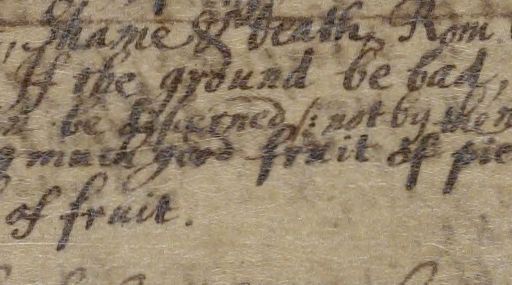 , shame & death. Rom
If the ground be bad,
be discerned /: not by the
much good fruit of pie
of fruit.